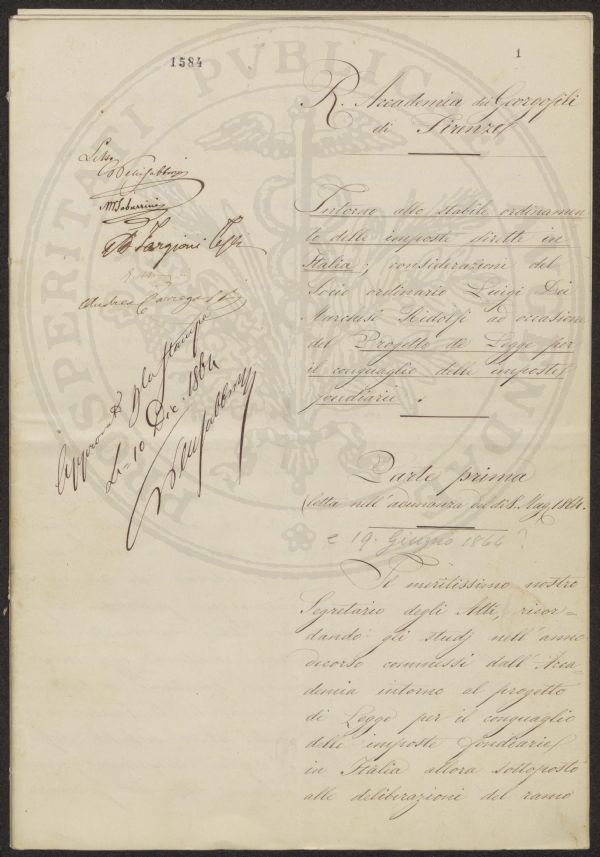 1584
1
R. Accademia dei Georgofili
di Firenze
Letto
M Tabarrini
Targioni
Andrea
Approvato la Stampa
Li = 10 Dic. 1864
Intorno allo stabile ordinamen
to delle imposte dirette in
Italia; considerazioni del
Socio ordinario Luigi Dei
Marchesi Ridolfi ad occasione
del Progetto di Legge per
il conguaglio delle imposte
fondiarie.
Parte prima
(letta nell'adunanza del dì 8. Mag. 1864.
e 19. Giugno 1864?
Il meritissimo nostro
Segretario degli Atti, ricor-
dando gli studj nell'anno
decorso commessi dall'Acca-
demia intorno al progetto
di Legge per il conguaglio
delle imposte fondiarie
in Italia allora sottoposto
alle deliberazioni del ramo
PROSPERITATI PVBLICAE